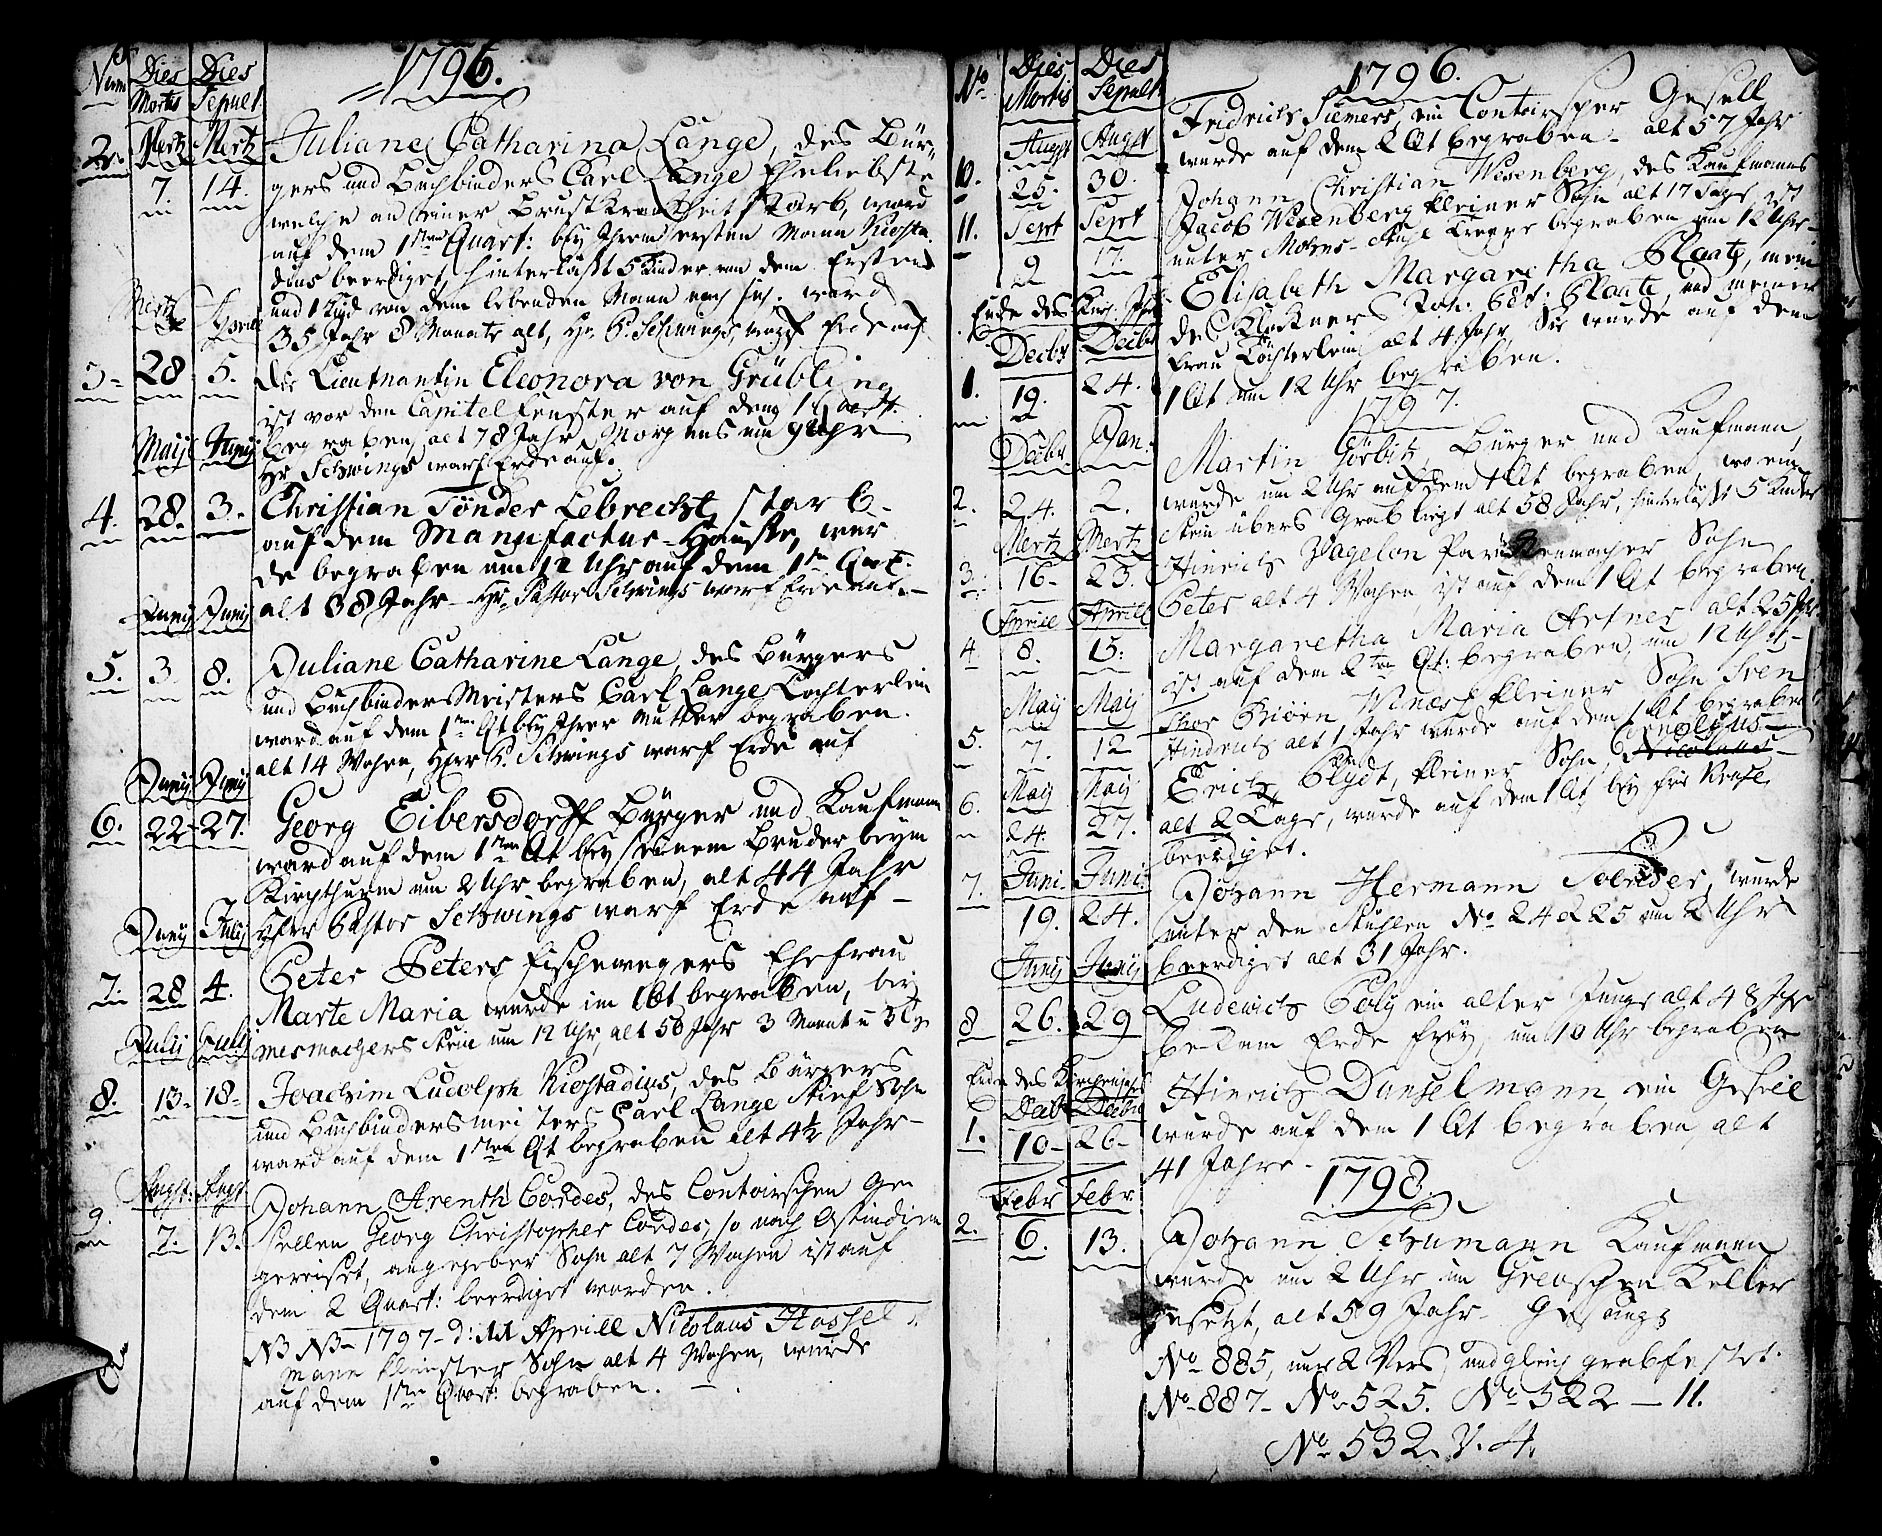 Num
Dies Mortis
Dies Sepult
1796.
2. Mertz 7. Mertz 14.
Juliane Catharina Lange, des Bür-
gers und Buchbinders Carl Lange Eheliebste
welche an einer Brustkrankheit starb, ward
auf dem 1sten Quart: bey Ihrem ersten Mann Riosta
dius beerdiget, hinterläßt 5 Kinder von dem Ersten
und 1 Kind von dem lebenden Mann nach sich. ward
35 Jahr 8 Monate alt, Hr. P. Schwings, warff Erde auf
3. Mertz 28 Aprill 5.
die Lieutnantin Eleonora von Grübling
ist vor den Capitel fenster auf dem 1 Quart.
begraben, alt 78 Jahr, Morgens um 9 Uhr
Hr. Schwings warf Erde auf.
4. Maij 28. Junij 3.
Christian Tönder Lebrecht, starb
auf dem Manufactur-Hause, wur
de begraben um 12 Uhr auf dem 1ten Qart.
alt 38 Jahr - Hr. Pastor Schwings warf Erde auf. -
5. Junij 3. Junij 8.
Juliane Catharine Lange, des Bürgers
und Buchbinder Meisters Carl Lange Töchterlein
ward auf dem 1ten Qt bey Ihrer Mutter begraben.
alt 14 Wochen, Herr P. Schwings warf Erde auf
6. Junij 22- Junij 27.
Georg Eibersdorff Bürger und Kaufmann
ward auf dem 1sten Qt bey seinem Bruder beym
Kirchthurm um 2 Uhr begraben, alt 44 Jahr
Herr Pastor Schwings warf Erde auf -
7. Junij 28 Julij 4.
Peter Peters Fischwegers Ehefrau
Marte Maria wurde im 1 Qt begraben, bey
mesmachers Stein um 12 Uhr, alt 50 Jahr 3 Monat u 3 Tge
8. Julij 13- Julij 18-
Joachim Ludolph Riostadius, des Bürgers
und Buchbindersmeisters Carl Lange Stief Sohn
ward auf dem 1sten Qt begraben alt 4½ Jahr -
9. Augst: 7. Augst 13.
Johann Arenth Cordes, des Contoirschen Ge
sellen Georg Christopher Cordes, so nach Ostindien
gereiset, angegeber Sohn alt 7 Wochen ist auf
dem 2 Quart: beerdiget worden.
NB NB - 1797 - d: 11 Aprill Nicolaus Hassel
mann kleinster Sohn alt 4 Wochen, wurde
auf dem 1ten Quart: begraben. -
No. Dies Mortis Dies Sepult
1796.
Augst Augst
Fridrich Siemers, ein Contoirscher Gesell
wurde auf dem 2 Qt begraben - alt 57 Jahr
10. 25. 30.
Johann Christian Wesenberg, des Kaufmanns
Jacob Wesenberg kleiner Sohn alt 17 Tage, ist
unter Mohrs Stuhl Treppe begraben um 12 Uhr -
11. Sept 9 Sept 17.
Elisabeth Margaretha Plaate, mein
des Klockners Joh: Pet: Plaate, und meiner
Frau Töchterlein alt 4 Jahr, Sie wurde auf dem
1 Qt um 12 Uhr begraben.
Ende des Kirch. Jahr
1797.
1. Decbr 19. Decbr 24.
Martin Görbitz, Bürger und Kaufmann,
wurde um 2 Uhr auf dem 1 Qt begraben, wo ein
Stein übers Grab liegt alt 58 Jahr, hinterläßt 5 Kinder
2. Decbr 24. Jan. 2.
Hinrich Zagelon Parückenmacher Sohn
Peter alt 4 Wochen, ist auf dem 1 Qt begraben
3. Mertz 16- Mertz 23.
Margaretha Maria Artner alt 25 Jahr
ist auf dem 2ten Qt: begraben, um 12 Uhr -
4. Aprill 8. Aprill 15.
Thor Biörn kleiner Sohn Sven
Hindrich alt 1 Jahr wurde auf dem 1 Qt begraben
5. Maij 7. Maij 12
Erich Plydt, kleiner Sohn, Cornelius
alt 2 Tage, wurde auf dem 1 Qt bey
beerdiget.
6. Maij 24. Maij 27.
Johann Hermann Soerdes, wurde
unter den Stühlen No. 24 & 25 um 2 Uhr
beerdiget alt 31 Jahr.
7. Juni. 19. Juni. 24.
8. Junij 26. Junij 29
Ludewich Poly ein alter Junge alt 48 Jahr
bekam Erde frey, um 10 Uhr begraben
Ende des Kirchenjahrs
1. Decbr 10- Decbr 26-
Hinrich Danselmann, ein Gesell
wurde auf dem 1 Qt begraben, alt
41 Jahre -
1798
2. Febr 6. Febr 13.
Johann Schumann Kaufmann
wurde um 2 Uhr im Greuschen Keller
gesetzt, alt 59 Jahr - Gesangs
No 885, nur 2 Vers, und gleich grabfestet.
No 887 - No 525. No 522 - 11.
No 532. V. 4.